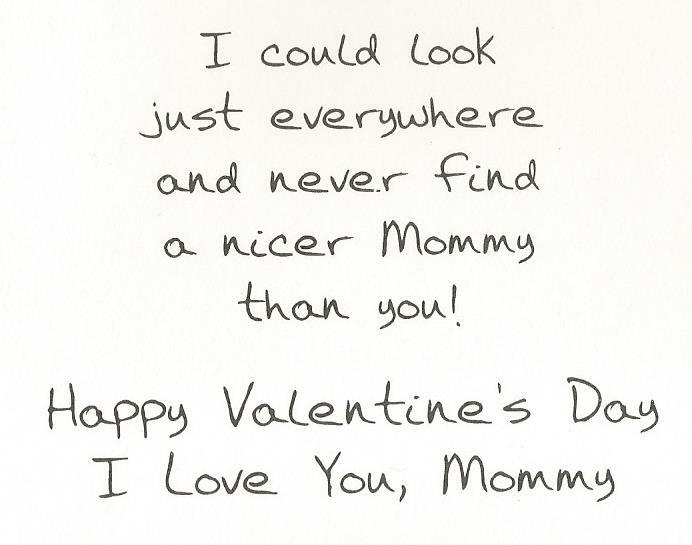 I could look
just everywhere
and never find
a nicer Mommy
than you!
Happy Valentine's Day
I Love You, Mommy